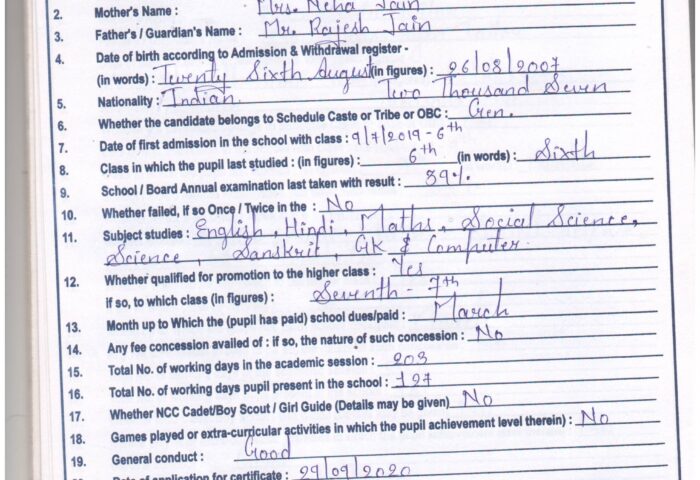 2. Mother's Name : Mrs. Neha Jain
3. Father's / Guardian's Name : Mr. Rajesh Jain
4. Date of birth according to Admission & Withdrawal register -
(in words) : Twenty Sixth August (in figures) : 26/08/2007
Two Thousand Seven
5. Nationality : Indian
6. Whether the candidate belongs to Schedule Caste or Tribe or OBC : Gen.
7. Date of first admission in the school with class : 9/7/2019 - 6th
8. Class in which the pupil last studied : (in figures) : 6th (in words) : Sixth
9. School / Board Annual examination last taken with result : 89%
10. Whether failed, if so Once / Twice in the : No
11. Subject studies : English, Hindi, Maths, Social Science,
Science, Sanskrit, GK & Computer
12. Whether qualified for promotion to the higher class : Yes
If so, to which class (in figures) : Seventh - 7th
13. Month up to Which the (pupil has paid) school dues/paid : March
14. Any fee concession availed of : if so, the nature of such concession : No
15. Total No. of working days in the academic session : 203
16. Total No. of working days pupil present in the school : 197
17. Whether NCC Cadet/Boy Scout / Girl Guide (Details may be given) No
18. Games played or extra-curricular activities in which the pupil achievement level therein) : No
19. General conduct : Good
Date of application for certificate : 29/09/2020